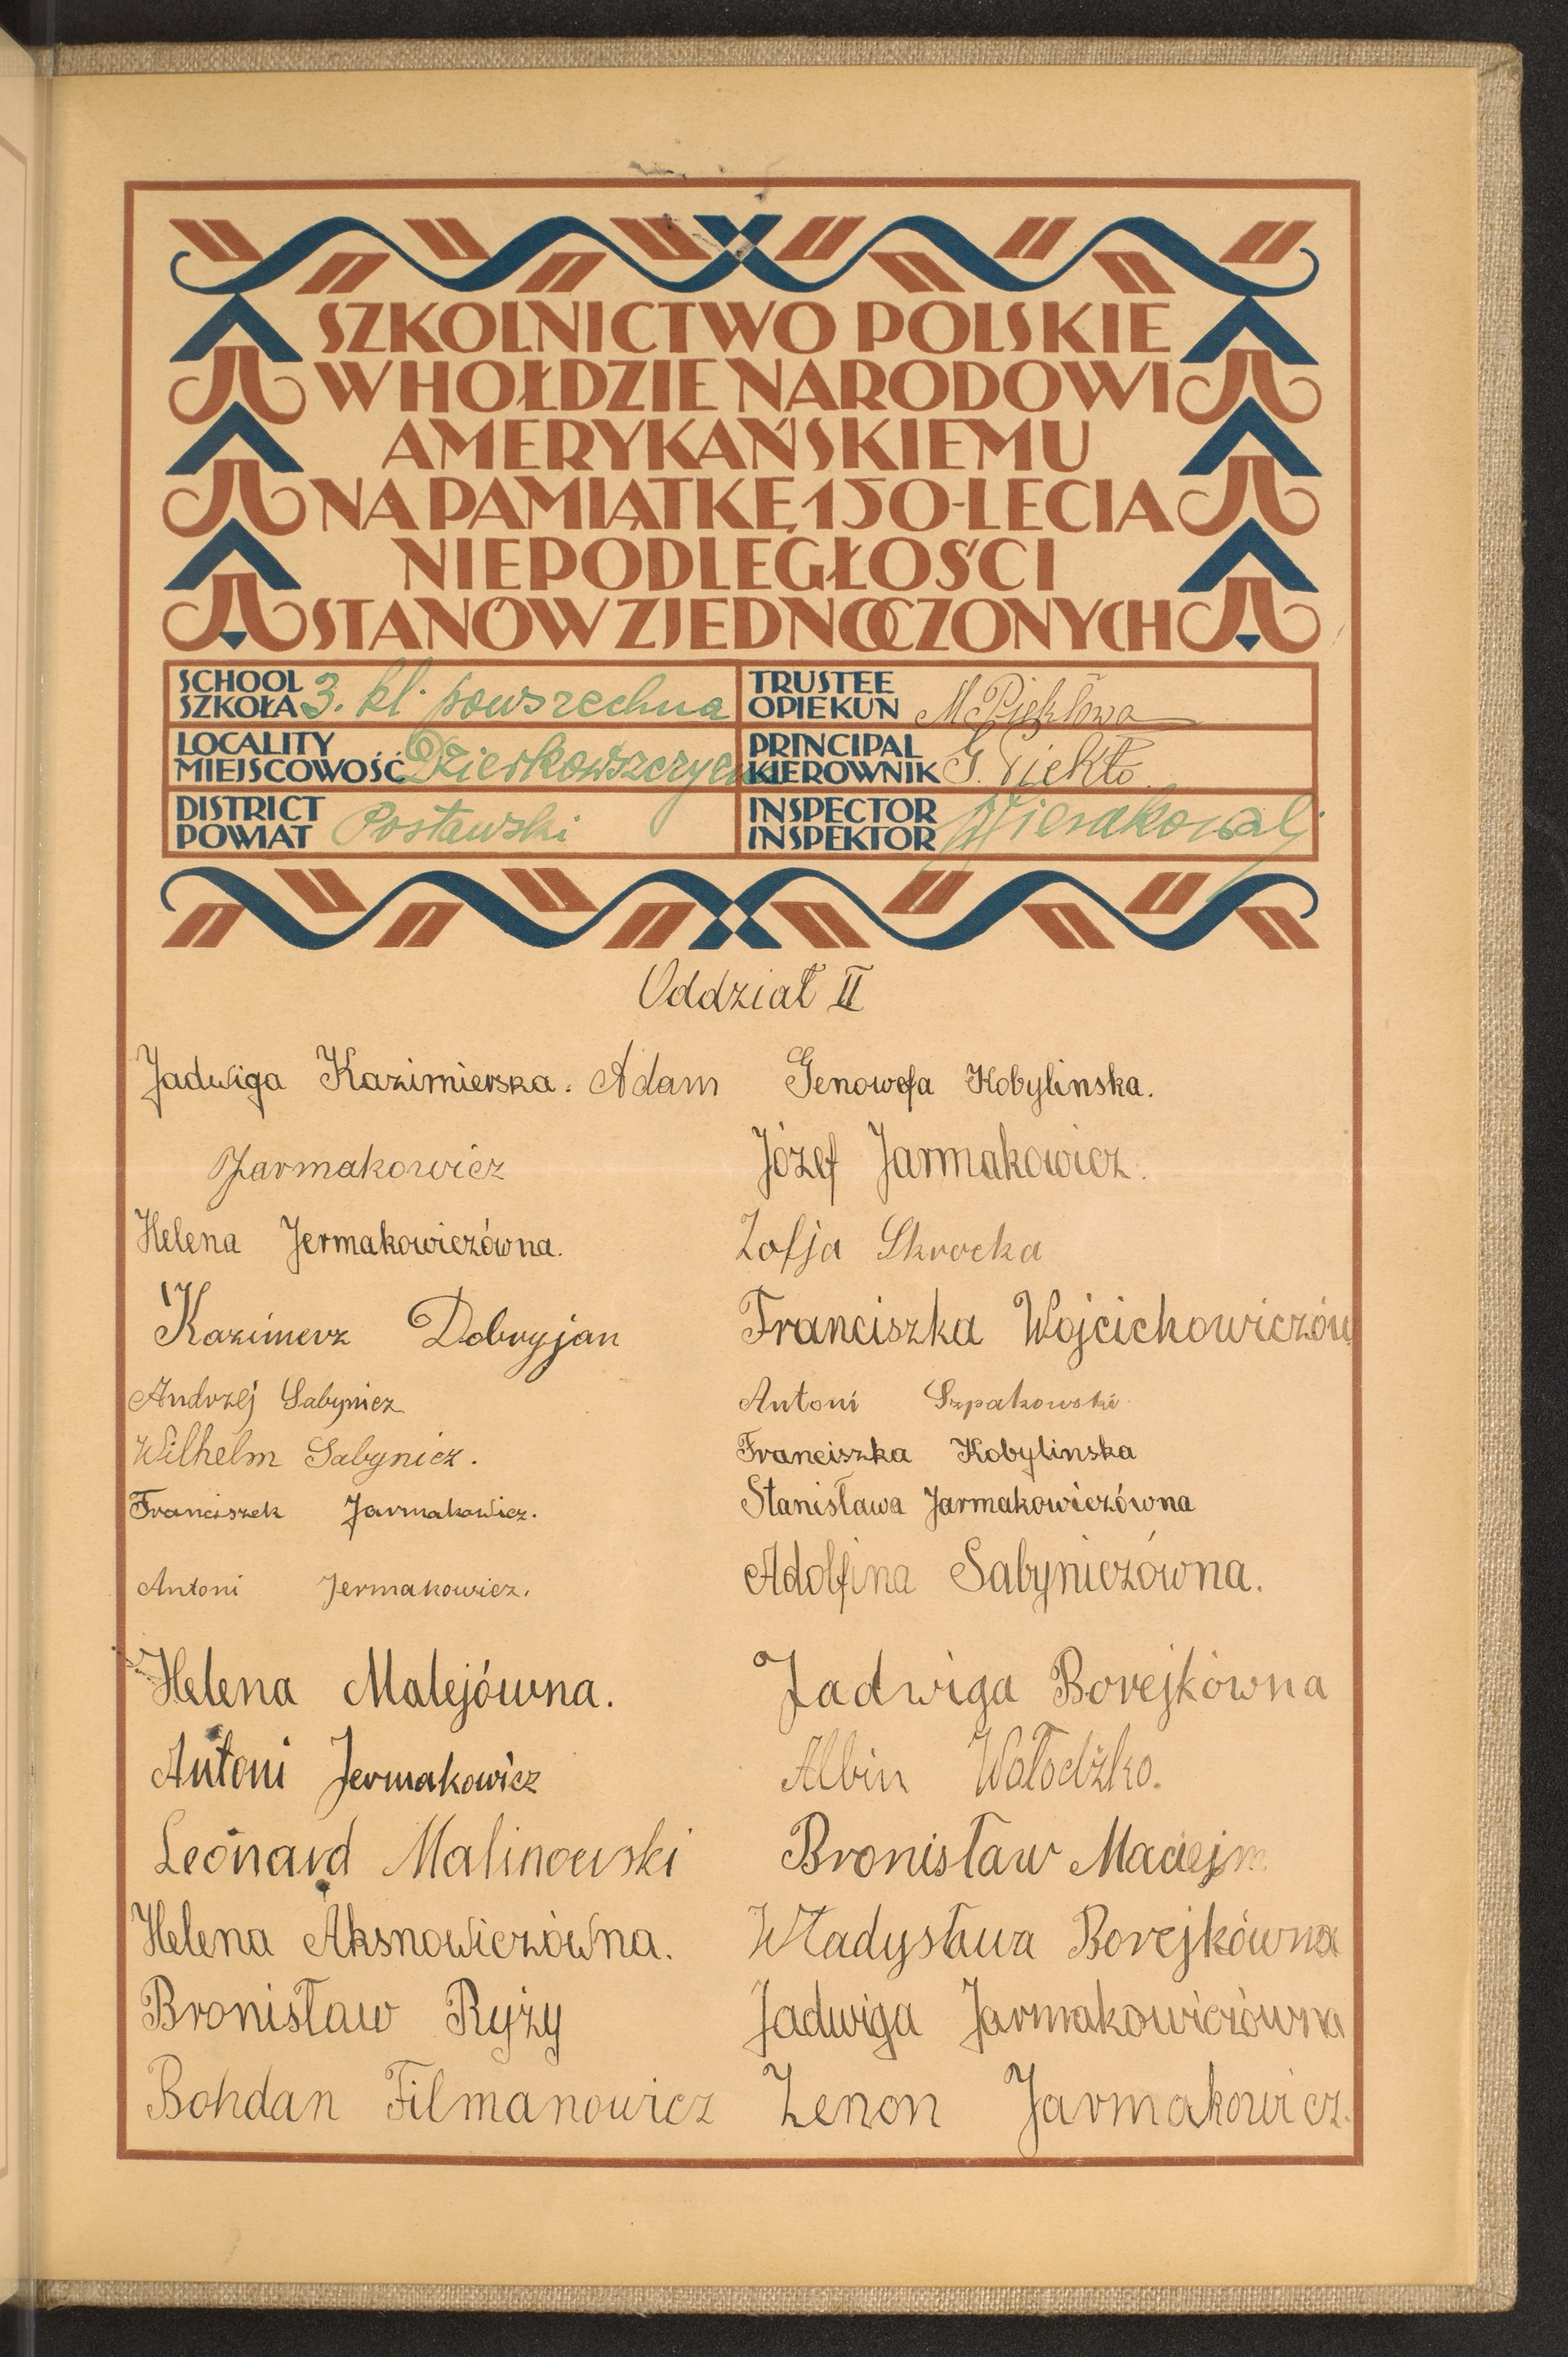 SZKOLNICTWO POLSKIE
W HOŁDZIE NARODOWI
AMERYKAŃSKIEMU
NA PAMIĄTKĘ 150-LECIA
NIEPODLEGŁOŚCI
STANÓW ZJEDNOCZONYCH
SCHOOL
SZKOŁA 3. kl. powszechna
TRUSTEE
OPIEKUN M Piekłowa
LOCALITY
MIEJSCOWOŚĆ
PRINCIPAL
KIEROWNIK G. Piekło
DISTRICT
POWIAT Postawski
INSPECTOR
INSPEKTOR
Oddział II
Jadwiga Kazimierska. Adam
Jarmakowicz
Helena Jermakowiczówna.
Kazimerz Dobryjan
Andrzej Sabynicz
Wilhelm Sabynicz.
Franciszek Jarmakowicz.
Antoni Jermakowicz.
Helena Malejówna.
Antoni Jermakowicz
Leonard Malinowski
Helena Aksnowiczówna.
Bronisław Ryży
Bohdan Filmanowicz
Genowefa Kobylinska.
Józef Jarmakowicz.
Zofja Skrocka
Franciszka Wojcichowiczów
Antoni Szpakowski
Franciszka Kobylinska
Stanisława Jarmakowiczówna
Adolfina Sabyniczówna.
Jadwiga Borejkówna
Albin Wołodźko.
Bronisław
Władysława Borejkówna
Jadwiga Jarmakowiczówna
Zenon Jarmakowicz.